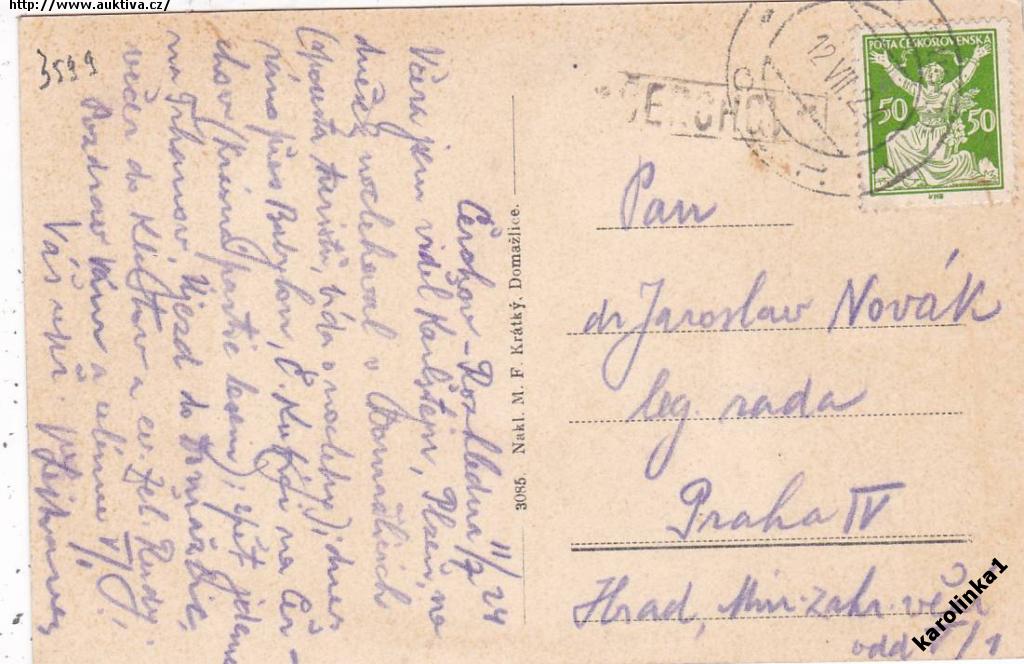 http://www.auktiva.cz/
3599
Čerchov-Rozhledna 11/7 24
Včera jsem viděl Karlštejn, Plzeň, na
dnešek noclehoval v Domažlicích
(spousta turistů, bída o noclehy); dnes
ráno přes Babylon, Č. Kubici na Čer-
chov (krásná partie lesem); zpět jdeme
na Trhanov, Újezd do Domažlic,
večer do Klatov a ev. Žel. Rudy.
Pozdrav Vám a celému V/1.
Váš upř.
3085. Nakl. M. F. Krátký, Domažlice.
ČERCHOV
12 VII 24
POŠTA ČESKOSLOVENSKÁ
50 50
Pan
dr Jaroslav Novák
leg. rada
Praha IV
Hrad, Min. zahr. věcí
odd V/1
karolinka1